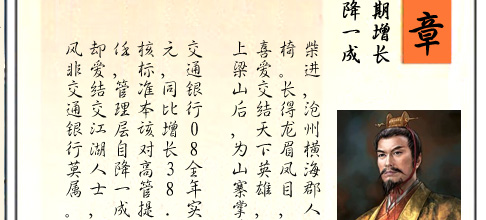 章
期增长
降一成
柴进，沧州横海郡人
椅。长得龙眉凤目，
喜爱交结天下英雄，
上梁山后，为山寨掌
交通银行08全年实
元，同比增长38.
核标准本该对高管提
任，管理层自降一成
却爱结交江湖人士，
风非交通银行莫属。